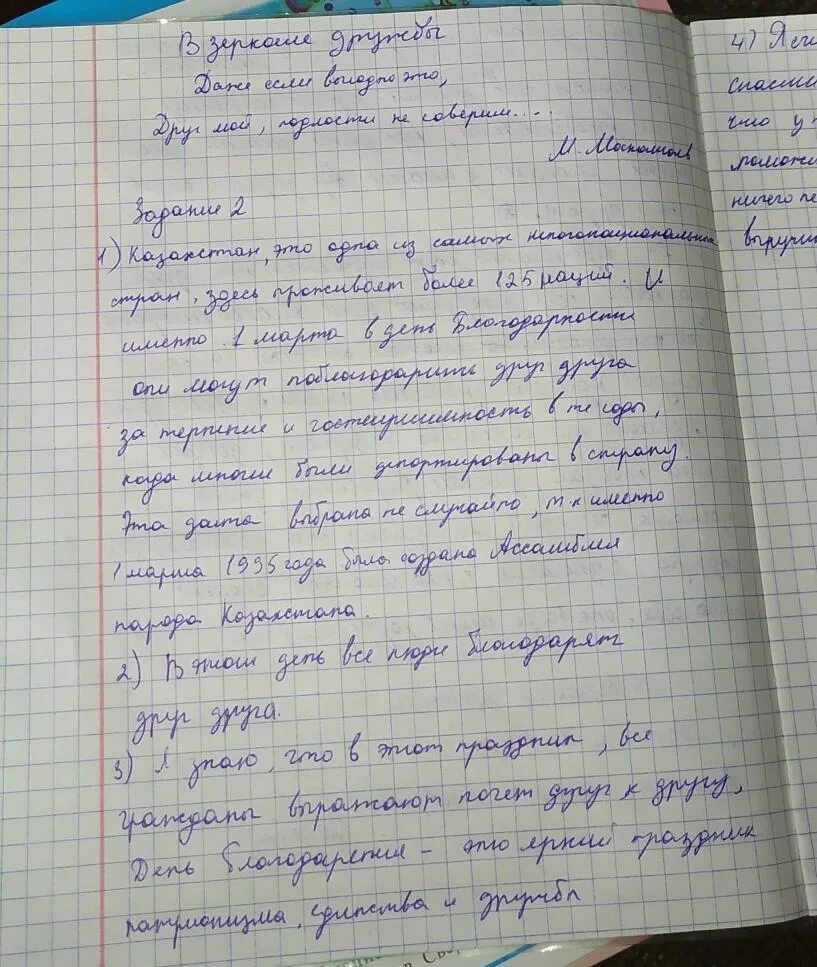 В зеркале дружбы
Даже если выгодно это,
Друг мой, подлости не говорим....
М.
Задание 2
1) Казахстан, это одна из самых многонациональных
стран, здесь проживает более 125 наций. И
именно 1 марта в день Благодарности
они могут поблагодарить друг друга
за терпение и гостеприимность в те годы,
когда многие были депортированы в страну.
Эта дата выбрана не случайно, т.к именно
1 марта 1995 года была создана Ассамблея
народа Казахстана.
2) В этот день все люди благодарят
друг друга.
3) Я знаю, что в этот праздник, все
граждане выражают почет друг к другу,
День благодарения – это яркий праздник
патриотизма, единства и дружбы
4) Я
спасти
что у
ничего не